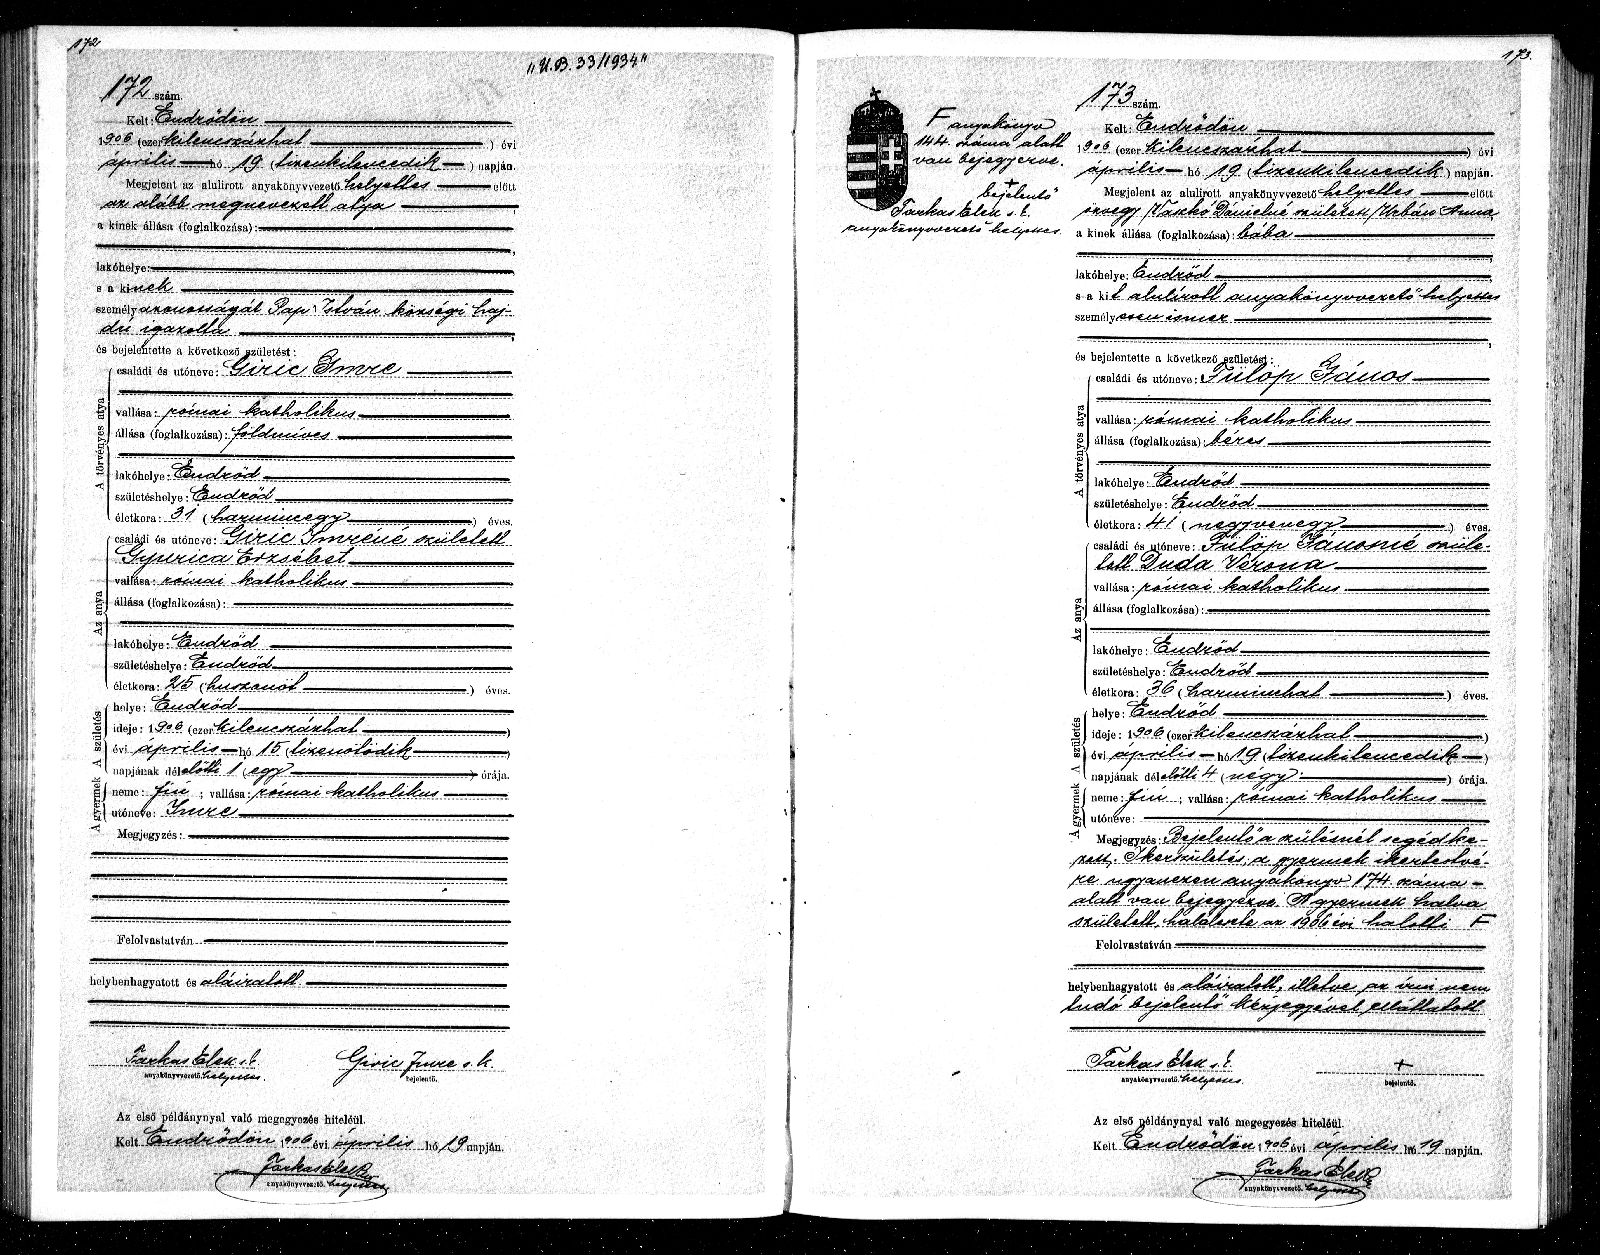 172
"U.B. 33/1934"
172 szám.
Kelt: Endrődön
1906 (ezer kilenczszázhat) évi
április hó 19 (tizenkilencedik) napján.
Megjelent az alulirott anyakönyvvezető helyettes előtt
az alább megnevezett atya
a kinek állása (foglalkozása):
lakóhelye:
s a kinek
személyazonosságát Pap István községi haj-
dú igazolta
és bejelentette a következő születést:
A törvényes atya
családi és utóneve: Giric Imre
vallása: római katholikus
állása (foglalkozása): földmíves
lakóhelye: Endrőd
születéshelye: Endrőd
életkora: 31 (harminczegy) éves.
Az anya
családi és utóneve: Giric Imréné született
Gyurica Erzsébet
vallása: római katholikus
állása (foglalkozása):
lakóhelye: Endrőd
születéshelye: Endrőd
életkora: 25 (huszonöt) éves.
A születés
helye: Endrőd
ideje: 1906 (ezer kilenczszázhat)
évi április hó 15 (tizenötödik)
napjának délelőtti 1 (egy) órája.
A gyermek
neme: fiú; vallása: római katholikus
utóneve: Imre
Megjegyzés:
Felolvastatván
helybenhagyatott és aláiratott.
Farkas Elek s. k. Giric Imre s. k.
anyakönyvvezető helyettes. bejelentő.
Az első példánynyal való megegyezés hiteléül.
Kelt Endrődön 1906 évi április hó 19 napján.
Farkas Elek
anyakönyvvezető helyettes
173.
F anyakönyv
144. száma alatt
van bejegyezve.
+
bejelentő
Farkas Elek s. k.
anyakönyvvezető helyettes.
173 szám.
Kelt: Endrődön
1906 (ezer kilenczszázhat) évi
április hó 19 (tizenkilencedik) napján.
Megjelent az alulirott anyakönyvvezető helyettes előtt
özvegy Vaszkó Dánielné született Urbán Anna,
a kinek állása (foglalkozása): bába
lakóhelye: Endrőd
s a kit alulírott anyakönyvvezető helyettes
személyesen ismer
és bejelentette a következő születést:
A törvényes atya
családi és utóneve: Fülöp János
vallása: római katholikus
állása (foglalkozása): béres
lakóhelye: Endrőd
születéshelye: Endrőd
életkora: 41 (negyvenegy) éves.
Az anya
családi és utóneve: Fülöp Jánosné szüle-
tett Duda Verona
vallása: római katholikus
állása (foglalkozása):
lakóhelye: Endrőd
születéshelye: Endrőd
életkora: 36 (harminchat) éves.
A születés
helye: Endrőd
ideje: 1906 (ezer kilenczszázhat)
évi április hó 19 (tizenkilencedik)
napjának délelőtti 4 (négy) órája.
A gyermek
neme: fiú; vallása: római katholikus
utóneve:
Megjegyzés: Bejelentő a szülésnél segédke-
zett. Ikerszületés, a gyermek ikertestvé-
re ugyanezen anyakönyv 174 száma
alatt van bejegyezve. A gyermek halva
született, halálesete az 1906 évi halotti F
Felolvastatván
helybenhagyatott és aláiratott, illetve az írni nem
tudó bejelentő kézjegyével elláttatott
Farkas Elek s. k. +
anyakönyvvezető helyettes. bejelentő.
Az első példánynyal való megegyezés hiteléül.
Kelt Endrődön 1906 évi április hó 19 napján.
Farkas Elek
anyakönyvvezető helyettes